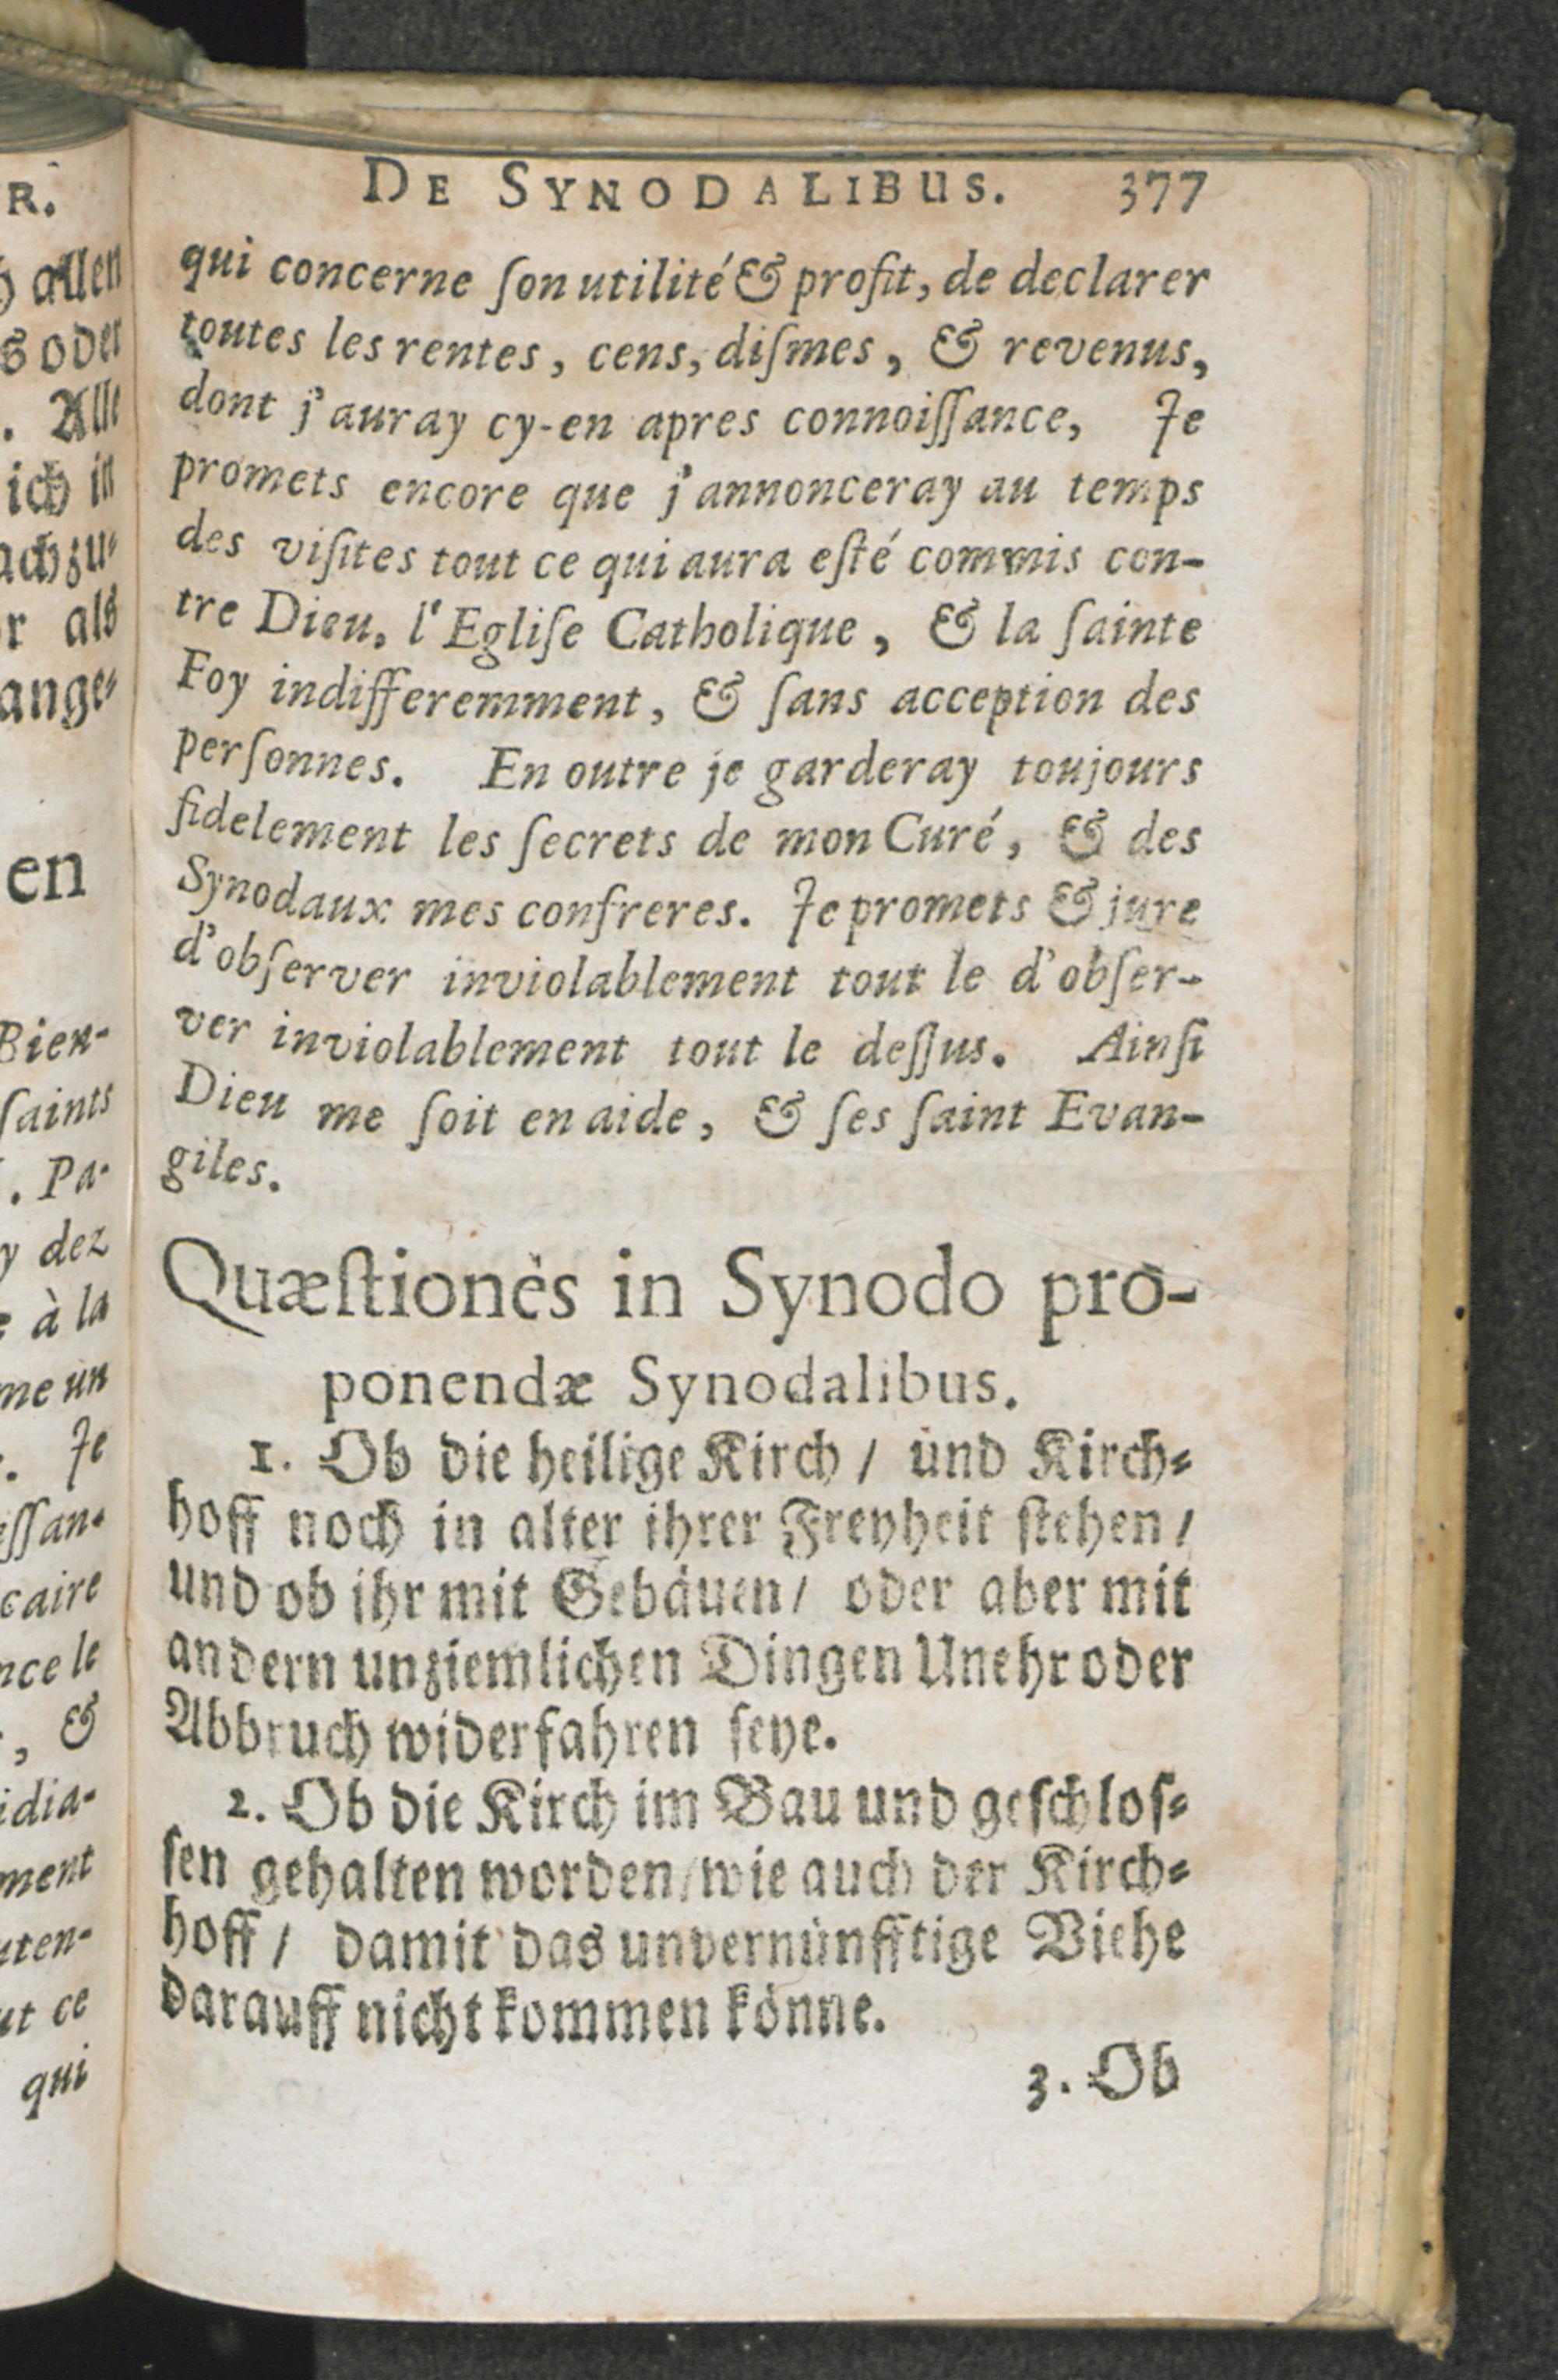 R.
allen
s oder
. Alle
ich in
achzu⸗
r als
ange⸗
en
Bien-
ſaints
. Pa-
y dez
e à la
me un
. Je
eſſan-
caire
nce le
, &
idia-
ment
uten-
ut ce
qui
DE SYNODALIBUS. 377
qui concerne ſon utilité & profit, de declarer
toutes les rentes, cens, diſmes, & revenus,
dont j'auray cy-en apres connoiſſance, Je
promets encore que j'annonceray au temps
des viſites tout ce qui aura eſté commis con-
tre Dieu, l'Egliſe Catholique, & la ſainte
Foy indifferemment, & ſans acception des
perſonnes. En outre je garderay toujours
fidelement les ſecrets de mon Curé, & des
Synodaux mes confreres. Je promets & jure
d'obſerver inviolablement tout le d'obſer-
ver inviolablement tout le deſſus. Ainſi
Dieu me ſoit en aide, & ſes ſaint Evan-
giles.
Quæſtiones in Synodo pro-
ponendæ Synodalibus.
1. Ob die heilige Kirch / und Kirch⸗
hoff noch in alter ihrer Freyheit ſtehen /
und ob ihr mit Gebäuen / oder aber mit
andern unziemlichen Dingen Unehr oder
Abbruch widerfahren ſeye.
2. Ob die Kirch im Bau und geſchloſ⸗
ſen gehalten worden / wie auch der Kirch⸗
hoff / damit das unvernünfftige Viehe
darauff nicht kommen könne.
3. Ob